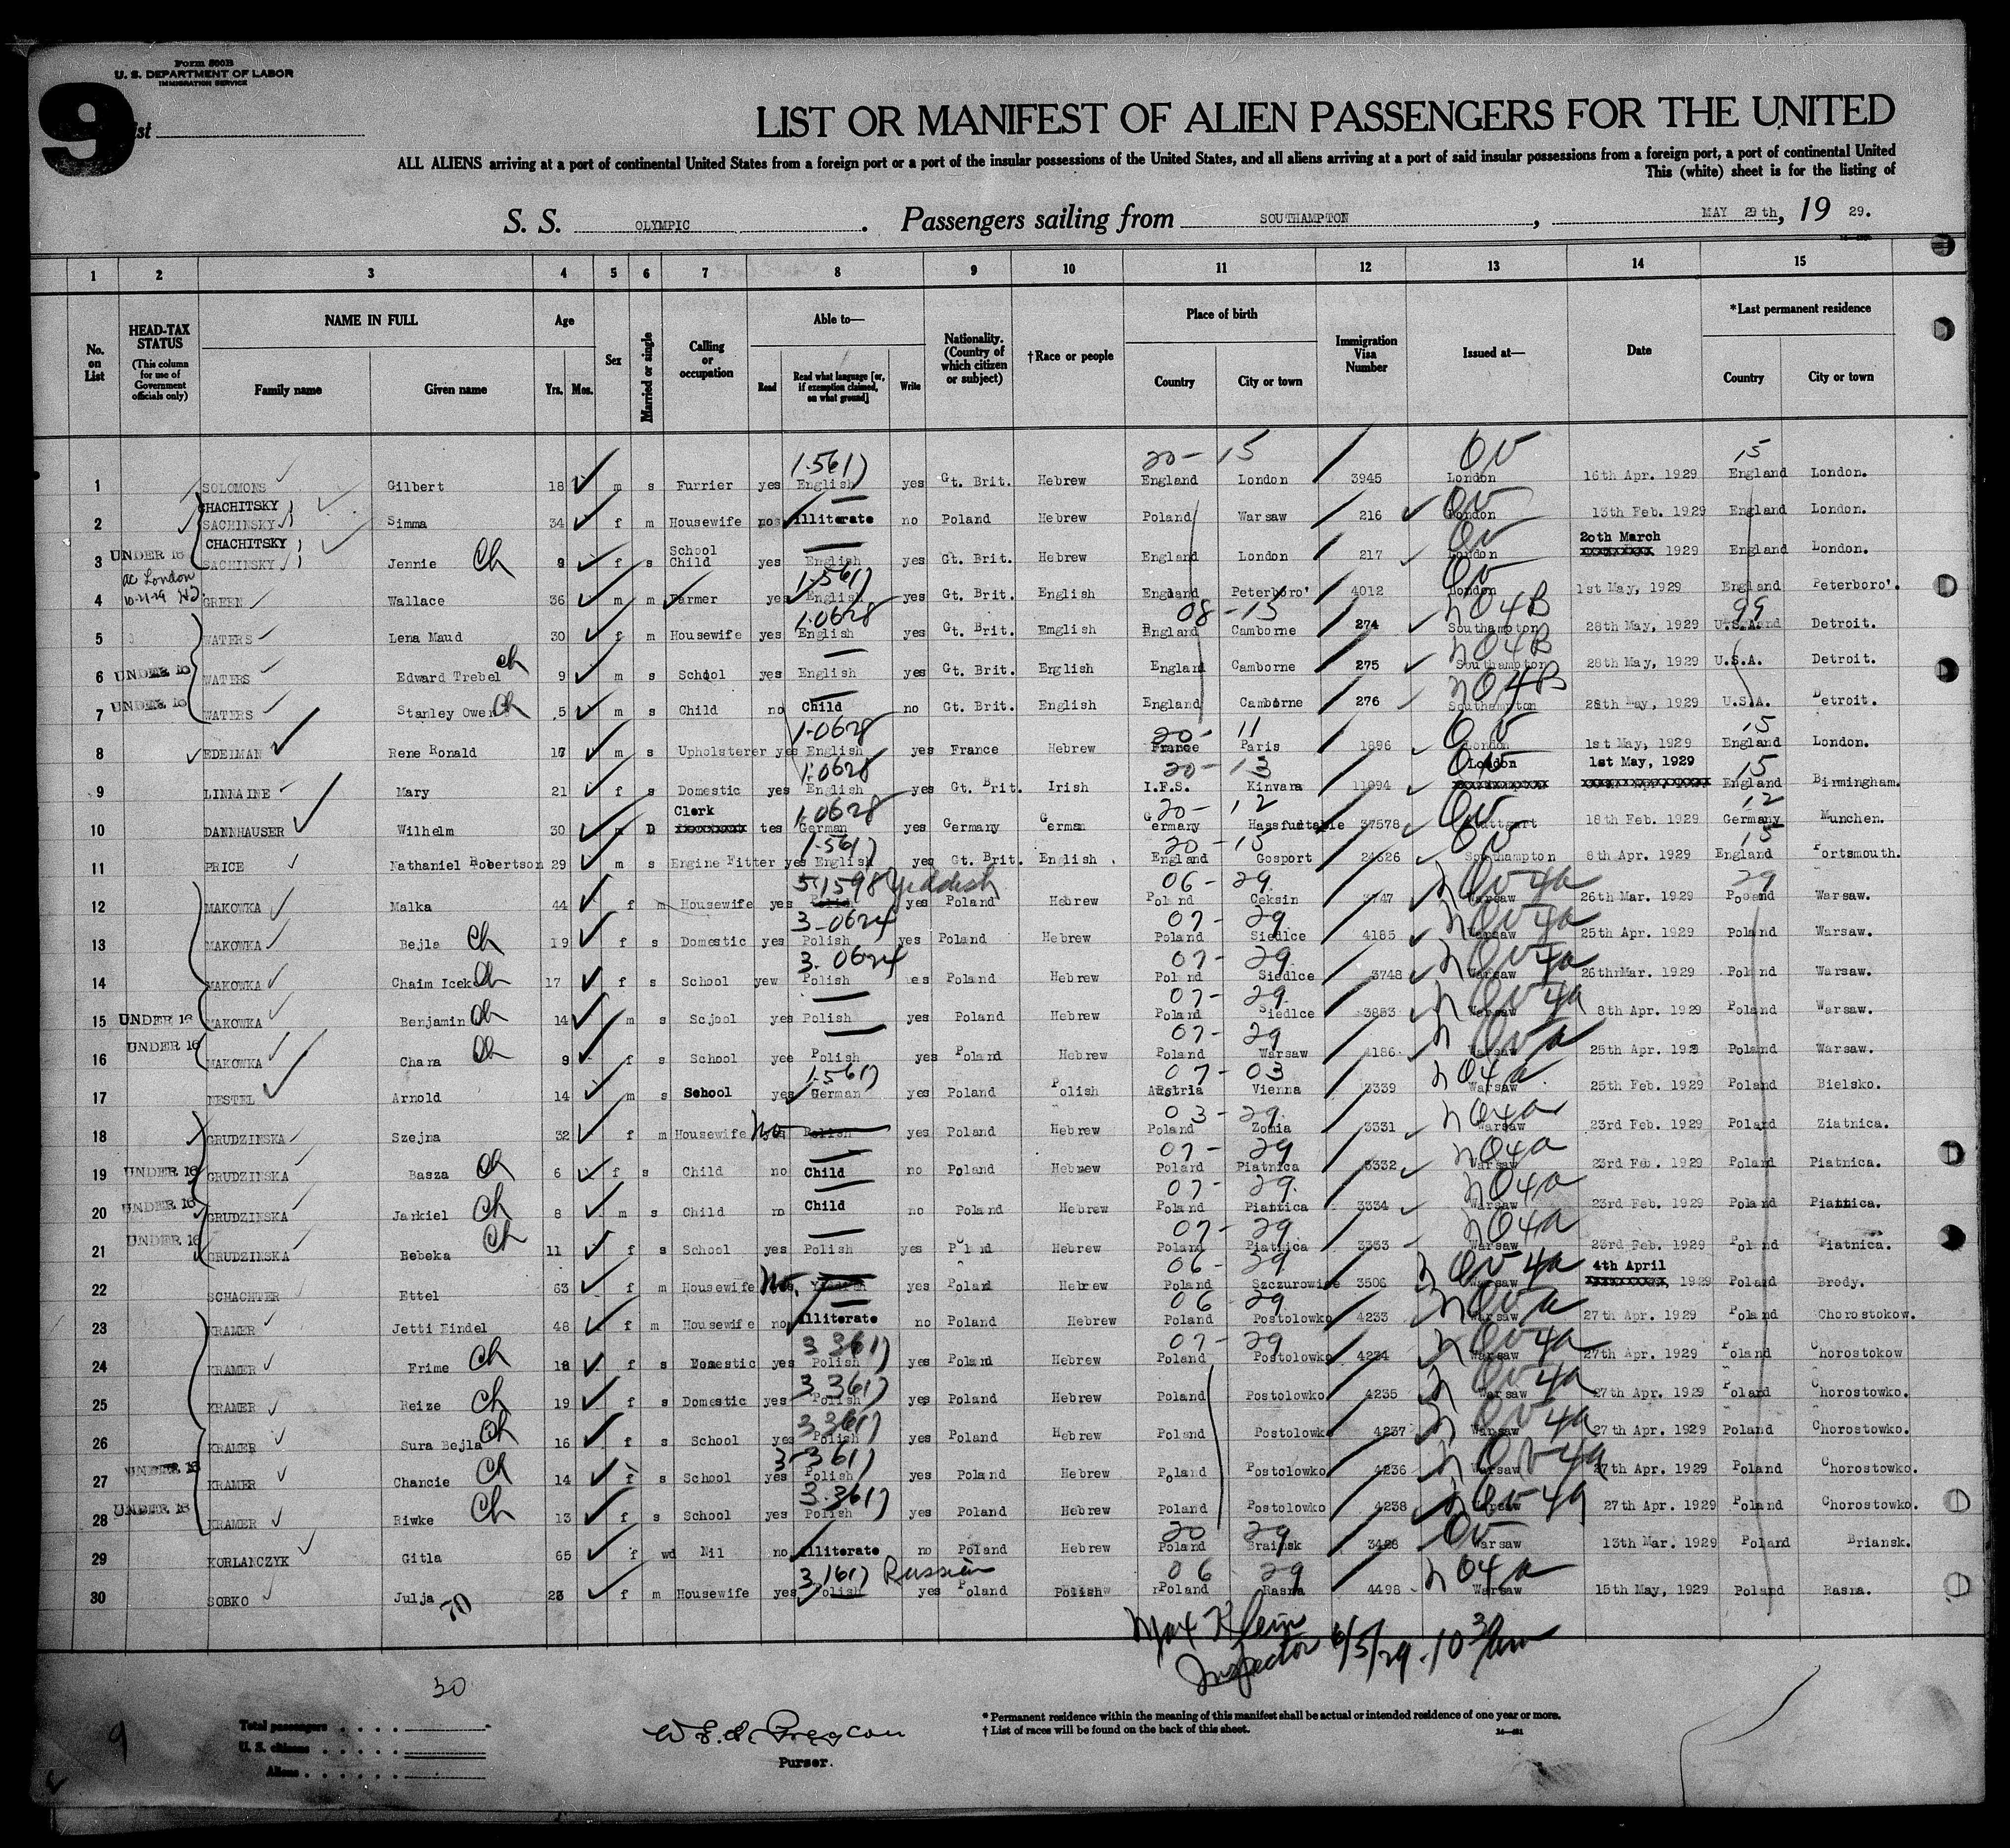 Form 500B
U. S. DEPARTMENT OF LABOR
IMMIGRATION SERVICE
9
List
LIST OR MANIFEST OF ALIEN PASSENGERS FOR THE UNITED
ALL ALIENS arriving at a port of continental United States from a foreign port or a port of the insular possessions of the United States, and all aliens arriving at a port of said insular possessions from a foreign port, a port of continental United
This (white) sheet is for the listing of
S. S. OLYMPIC . Passengers sailing from SOUTHAMPTON , MAY 29th, 19 29.
1 2 3 4 5 6 7 8 9 10 11 12 13 14 15
No. on List
HEAD-TAX STATUS (This column for use of Government officials only)
NAME IN FULL Family name Given name
Age Yrs. Mos.
Sex
Married or single
Calling or occupation
Able to— Read Read what language [or, if exemption claimed, on what ground] Write
Nationality. (Country of which citizen or subject)
†Race or people
Place of birth Country City or town
Immigration Visa Number
Issued at—
Date
*Last permanent residence Country City or town
1.5617 20- 15 OV 15
1 SOLOMONS Gilbert 18 m s Furrier yes English yes Gt. Brit. Hebrew England London 3945 London 16th Apr. 1929 England London.
CHACHITSKY OV
2 SACHINSKY Simma 34 f m Housewife no Illiterate no Poland Hebrew Poland Warsaw 216 London 13th Feb. 1929 England London.
CHACHITSKY OV 20th March
3 UNDER 16 SACHINSKY Jennie Ch 9 f s School Child yes English yes Gt. Brit. Hebrew England London 217 London 1929 England London.
ac London 10-21-29 1.5617 OV
4 GREEN Wallace 36 m m Farmer yes English yes Gt. Brit. English England Peterboro' 4012 London 1st May, 1929 England Peterboro'.
1.0628 08-15 n04B 99
5 WATERS Lena Maud 30 f m Housewife yes English yes Gt. Brit. Emglish England Camborne 274 Southampton 28th May, 1929 U.S.A. Detroit.
n04B
6 UNDER 16 WATERS Edward Trebel Ch 9 m s School yes English yes Gt. Brit. English England Camborne 275 Southampton 28th May, 1929 U.S.A. Detroit.
n04B
7 UNDER 16 WATERS Stanley Owen Ch 5 m s Child no Child no Gt. Brit. English England Camborne 276 Southampton 28th May, 1929 U.S.A. Detroit.
1.0628 20- 11 OV 15
8 EDELMAN Rene Ronald m s Upholsterer yes English yes France Hebrew France Paris 1896 London 1st May, 1929 England London.
1.0628 20- 13 OV London 1st May, 1929 15
9 LINNAINE Mary 21 f s Domestic yes English yes Gt. Brit. Irish I.F.S. Kinvara 11094 England Birmingham.
Clerk 1.0628 20- 12 OV 12
10 DANNHAUSER Wilhelm 30 m D tes German yes Germany German Germany 37578 Stuttgart 18th Feb. 1929 Germany Munchen.
1.5617 20-15 OV 15
11 PRICE Nathaniel Robertson 29 m s Engine Fitter yes English yes Gt. Brit. English England Gosport 24626 Southampton 8th Apr. 1929 England Portsmouth.
5.1598 Yiddish 06-29 n OV 4a 29
12 MAKOWKA Malka 44 f m Housewife yes yes Poland Hebrew Poland Ceksin 3747 Warsaw 26th Mar. 1929 Poland Warsaw.
3-0624 07-29 n OV 4a
13 MAKOWKA Bejla Ch 19 f s Domestic yes Polish yes Poland Hebrew Poland Siedlce 4185 Warsaw 25th Apr. 1929 Poland Warsaw.
3.0624 07-29 n OV 4a
14 MAKOWKA Chaim Icek Ch 17 f s School yew Polish yes Poland Hebrew Poland Siedlce 3748 Warsaw 26thrMar. 1929 Poland Warsaw.
07-29 n OV 4a
15 UNDER 16 MAKOWKA Benjamin Ch 14 m s Scjool yes Polish yes Poland Hebrew Poland Siedlce 3883 Warsaw 8th Apr. 1929 Poland Warsaw.
07-29 n OV a
16 UNDER 16 MAKOWKA Chana Ch 9 f s School yee Polish yes Poland Hebrew Poland Warsaw 4186 Warsaw 25th Apr. 1929 Poland Warsaw.
1.5617 07-03 n04a
17 NESTEL Arnold 14 m s School yes German yes Poland Polish Austria Vienna 3339 Warsaw 25th Feb. 1929 Poland Bielsko.
03-29 n04a
18 GRUDZINSKA Szejna 32 f m Housewife No Polish yes Poland Hebrew Poland Zonia 3331 Warsaw 23rd Feb. 1929 Poland Ziatnica.
07-29 n04a
19 UNDER 16 GRUDZINSKA Basza Ch 6 f s Child no Child no Poland Hebrew Poland Piatnica 3332 Warsaw 23rd Feb. 1929 Poland Piatnica.
07-29 n04a
20 UNDER 16 GRUDZINSKA Jankiel Ch 8 m s Child no Child no Poland Hebrew Poland Piatnica 3334 Warsaw 23rd Feb. 1929 Poland Piatnica.
07-29 n04a
21 UNDER 16 GRUDZINSKA Bebeka Ch 11 f s School yes Polish yes Poland Hebrew Poland Piatnica 3333 Warsaw 23rd Feb. 1929 Poland Piatnica.
06-29 n OV 4a 4th April
22 SCHACHTER Ettel 63 f m Housewife No. yes Poland Hebrew Poland Szczurowice 3506 Warsaw 1929 Poland Brody.
06 29 n OV a
23 KRAMER Jetti Eindel 48 f m Housewife no Illiterate no Poland Hebrew Poland Postolowko 4233 Warsaw 27th Apr. 1929 Poland Chorostokow.
3 3617 07-29 n OV 4a
24 KRAMER Frime Ch 18 f s Domestic yes Polish yes Poland Hebrew Poland Postolowko 4234 Warsaw 27th Apr. 1929 Poland Chorostokow
3.3617 n OV 4a
25 KRAMER Reize Ch 19 f s Domestic yes Polish yes Poland Hebrew Poland Postolowko 4235 Warsaw 27th Apr. 1929 Poland Chorostowko.
3.3617 n OV 4a
26 KRAMER Sura Bejla Ch 16 f s School yes Polish yes Poland Hebrew Poland Postolowk 4237 Warsaw 27th Apr. 1929 Poland Chorostowko.
3-3617 n OV 4a
27 UNDER 16 KRAMER Chancie Ch 14 f s School yes Polish yes Poland Hebrew Poland Postolowko 4236 Warsaw 27th Apr. 1929 Poland Chorostowko.
3.3617 n OV 4a
28 UNDER 16 KRAMER Riwke Ch 13 f s School yes Polish yes Poland Hebrew Poland Postolowko 4238 Warsaw 27th Apr. 1929 Poland Chorostowko.
20 29 OV
29 KORLANCZYK Gitla 65 f wd Nil no Illiterate no Poland Hebrew Poland Brainsk 3428 Warsaw 13th Mar. 1929 Poland Briansk.
3.1617 Russian 06 29 n04a
30 SOBKO Julja f m Housewife yes Polish yes Poland Polish Poland Rasna 4498 Warsaw 15th May, 1929 Poland Rasna.
70
Max Klein
Inspector 6/5/29. 10 30 am
30
9
Total passengers
U. S. citizens
Aliens
Purser.
* Permanent residence within the meaning of this manifest shall be actual or intended residence of one year or more.
† List of races will be found on the back of this sheet.